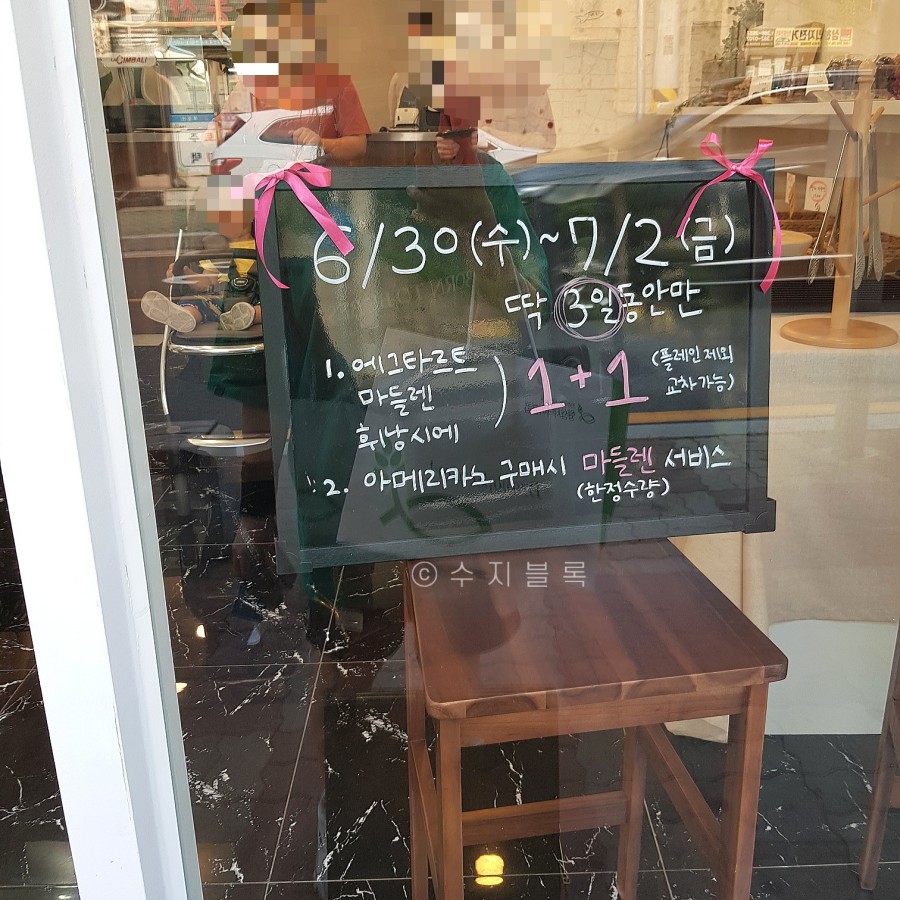 6/30(수)~7/2(금)
딱 3일동안만
1. 에그타르트
마들렌
휘낭시에
) 1+1
(플레인 제외
교차가능)
2. 아메리카노 구매시 마들렌 서비스
(한정수량)
© 수지블록